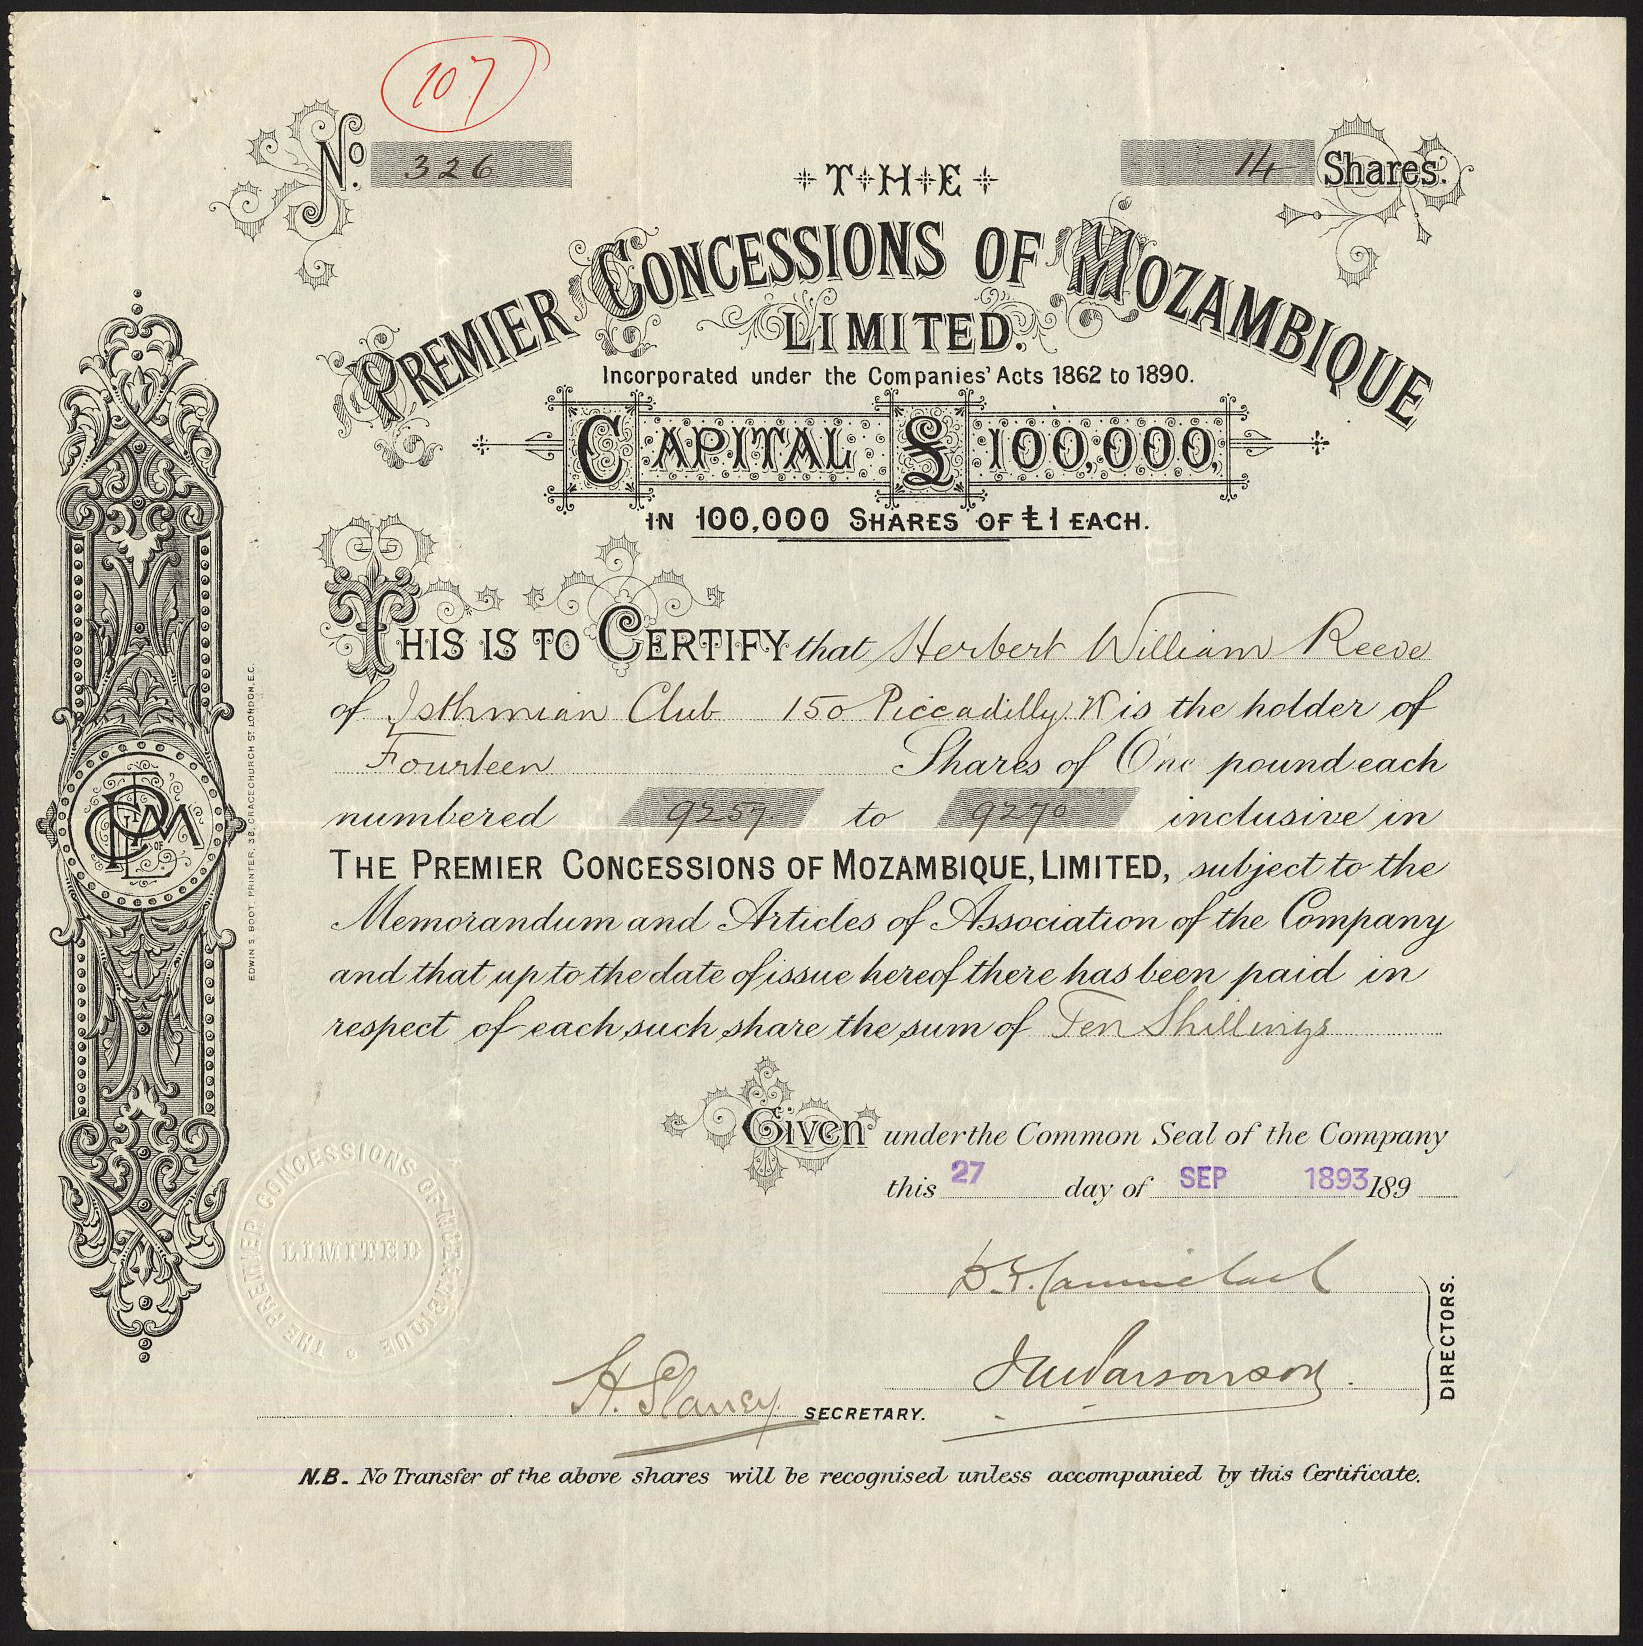 107
No. 326
14 Shares.
THE
PREMIER CONCESSIONS OF MOZAMBIQUE
LIMITED.
Incorporated under the Companies' Acts 1862 to 1890.
CAPITAL £100,000,
IN 100,000 SHARES OF £1 EACH.
THIS IS TO CERTIFY that Herbert William Reeve
of Isthmian Club 150 Piccadilly. W is the holder of
Fourteen Shares of One pound each
numbered 9257 to 9270 inclusive in
THE PREMIER CONCESSIONS OF MOZAMBIQUE, LIMITED, subject to the
Memorandum and Articles of Association of the Company
and that up to the date of issue hereof there has been paid in
respect of each such share the sum of Ten Shillings
Given under the Common Seal of the Company
this 27 day of SEP 1893 189
DIRECTORS.
H. Slaney SECRETARY.
N.B. No Transfer of the above shares will be recognised unless accompanied by this Certificate.
EDWIN S. BOOT, PRINTER, 38, GRACECHURCH ST. LONDON, E.C.
THE PREMIER CONCESSIONS OF MOZAMBIQUE
LIMITED